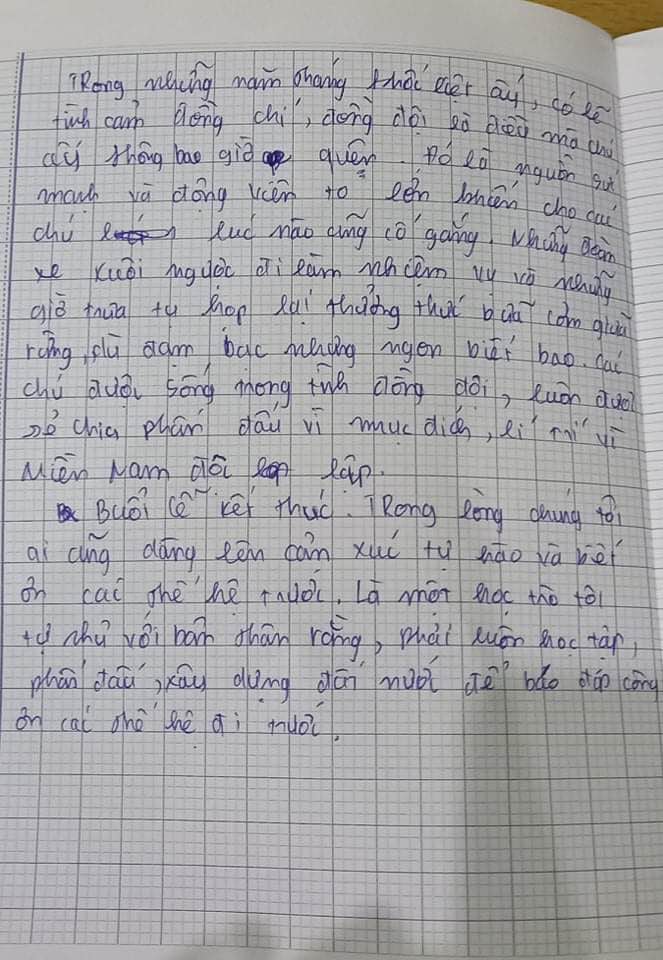 Trong những năm tháng khốc liệt ấy, có lẽ
tình cảm đồng chí, đồng đội là điều mà chú
ấy không bao giờ quên. Đó là nguồn sức
mạnh và động viên to lớn khiến cho các
chú lúc nào cũng cố gắng. Những đoàn
xe xuôi ngược đi làm nhiệm vụ và những
giờ trưa tụ họp lại thưởng thức bữa cơm giữa
rừng, dù đạm bạc nhưng ngon biết bao. Các
chú được sống trong tình đồng đội, luôn được
sẻ chia phấn đấu vì mục đích, lí vì
Miền Nam độc lập.
Buổi lễ kết thúc. Trong lòng chúng tôi
ai cũng dâng lên cảm xúc tự hào và biết
ơn các thế hệ trước. Là một học trò tôi
tự nhủ với bản thân rằng, phải luôn học tập,
phấn đấu, xây dựng đất nước để báo đáp công
ơn các thế hệ đi trước.